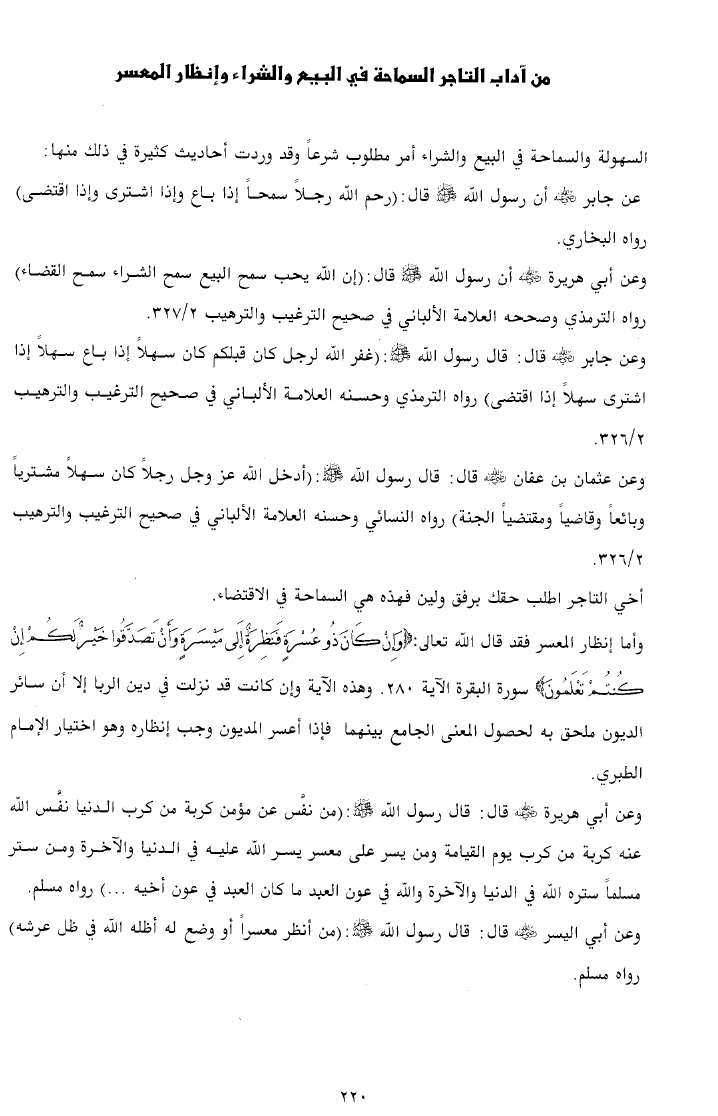 من آداب التاجر السماحة في البيع والشراء وإنظار المعسر
السهولة والسماحة في البيع والشراء أمر مطلوب شرعاً وقد وردت أحاديث كثيرة في ذلك منها:
عن جابر ﵁ أن رسول الله ﷺ قال:(رحم الله رجلاً سمحاً إذا باع وإذا اشترى وإذا اقتضى)
رواه البخاري.
وعن أبي هريرة ﵁ أن رسول الله ﷺ قال:(إن الله يحب سمح البيع سمح الشراء سمح القضاء)
رواه الترمذي وصححه العلامة الألباني في صحيح الترغيب والترهيب ٣٢٧/٢.
وعن جابر ﵁ قال: قال رسول الله ﷺ:(غفر الله لرجل كان قبلكم كان سهلاً إذا باع سهلاً إذا
اشترى سهلاً إذا اقتضى) رواه الترمذي وحسنه العلامة الألباني في صحيح الترغيب والترهيب
٣٢٦/٢.
وعن عثمان بن عفان ﵁ قال: قال رسول الله ﷺ:(أدخل الله عز وجل رجلاً كان سهلاً مشترياً
وبائعاً وقاضياً ومقتضياً الجنة) رواه النسائي وحسنه العلامة الألباني في صحيح الترغيب والترهيب
٣٢٦/٢.
أخي التاجر اطلب حقك برفق ولين فهذه هي السماحة في الاقتضاء.
وأما إنظار المعسر فقد قال الله تعالى:﴿وَإِنْ كَانَ ذُو عُسْرَةٍ فَنَظِرَةٌ إِلَى مَيْسَرَةٍ وَأَنْ تَصَدَّقُوا خَيْرٌ لَكُمْ إِنْ
كُنْتُمْ تَعْلَمُونَ﴾ سورة البقرة الآية ٢٨٠. وهذه الآية وإن كانت قد نزلت في دين الربا إلا أن سائر
الديون ملحق به لحصول المعنى الجامع بينهما فإذا أعسر المديون وجب إنظاره وهو اختيار الإمام
الطبري.
وعن أبي هريرة ﵁ قال: قال رسول الله ﷺ:(من نفَّس عن مؤمن كربة من كرب الدنيا نفَّس الله
عنه كربة من كرب يوم القيامة ومن يسر على معسر يسر الله عليه في الدنيا والآخرة ومن ستر
مسلماً ستره الله في الدنيا والآخرة والله في عون العبد ما كان العبد في عون أخيه ...) رواه مسلم.
وعن أبي اليسر ﵁ قال: قال رسول الله ﷺ:(من أنظر معسراً أو وضع له أظله الله في ظل عرشه)
رواه مسلم.
٢٢٠